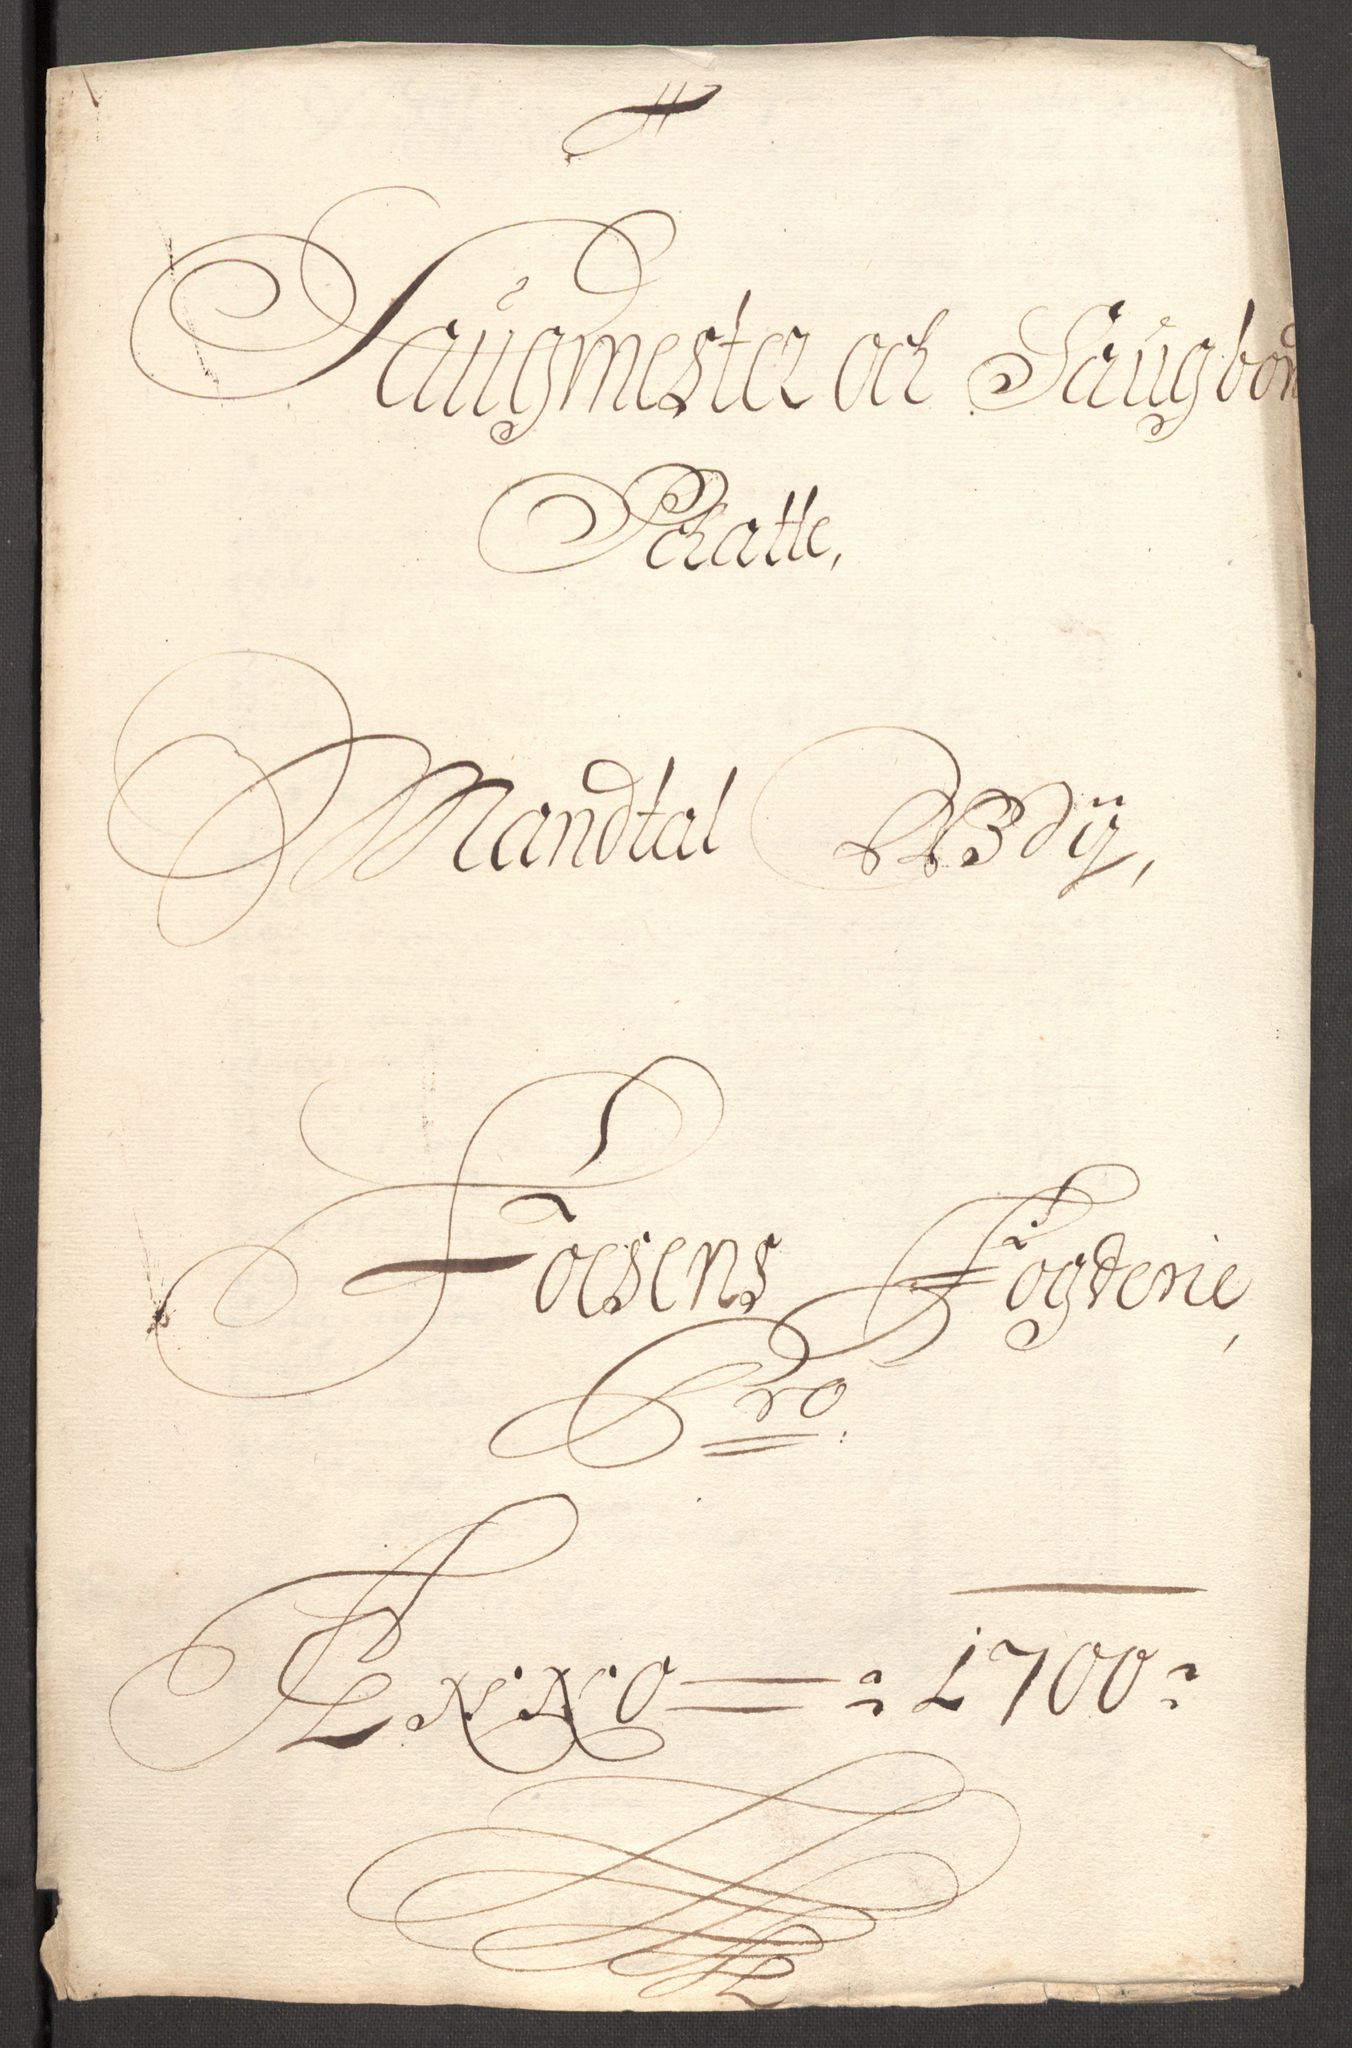 Saugmester och Saugbon
Schatte,
Mandtal Udj,
Foesens Fogderie,
Pro.
Anno = : 1700 :